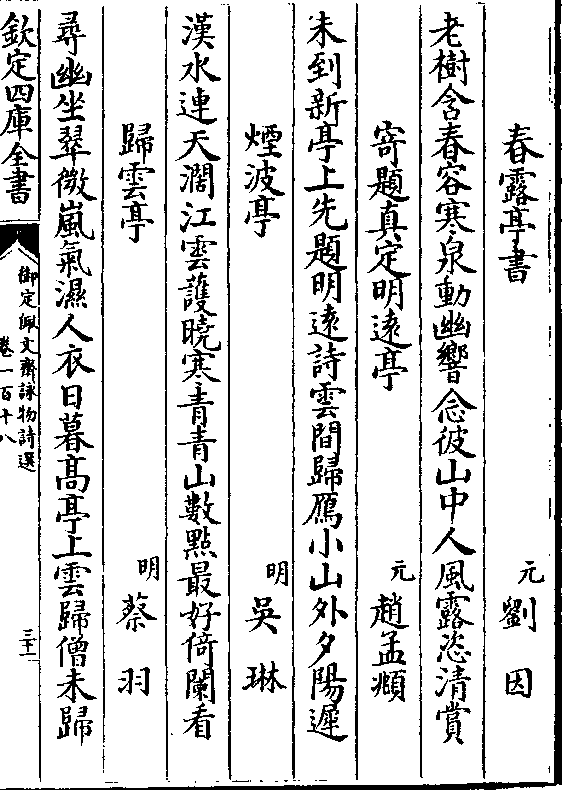 春露亭書 元 劉因
老樹含春容寒泉動幽響念彼山中人風露恣清賞
寄題真定明遠亭 元 趙孟頫
未到新亭上先題明遠詩雲間歸鴈小山外夕陽遲
煙波亭 明 吳琳
漢水連天濶江雲護曉寒青青山數點最好倚闌看
歸雲亭 明 蔡羽
尋幽坐翠微嵐氣濕人衣日暮髙亭上雲歸僧未歸
欽定四庫全書
御定佩文齋詠物詩選
卷一百十八
三十一